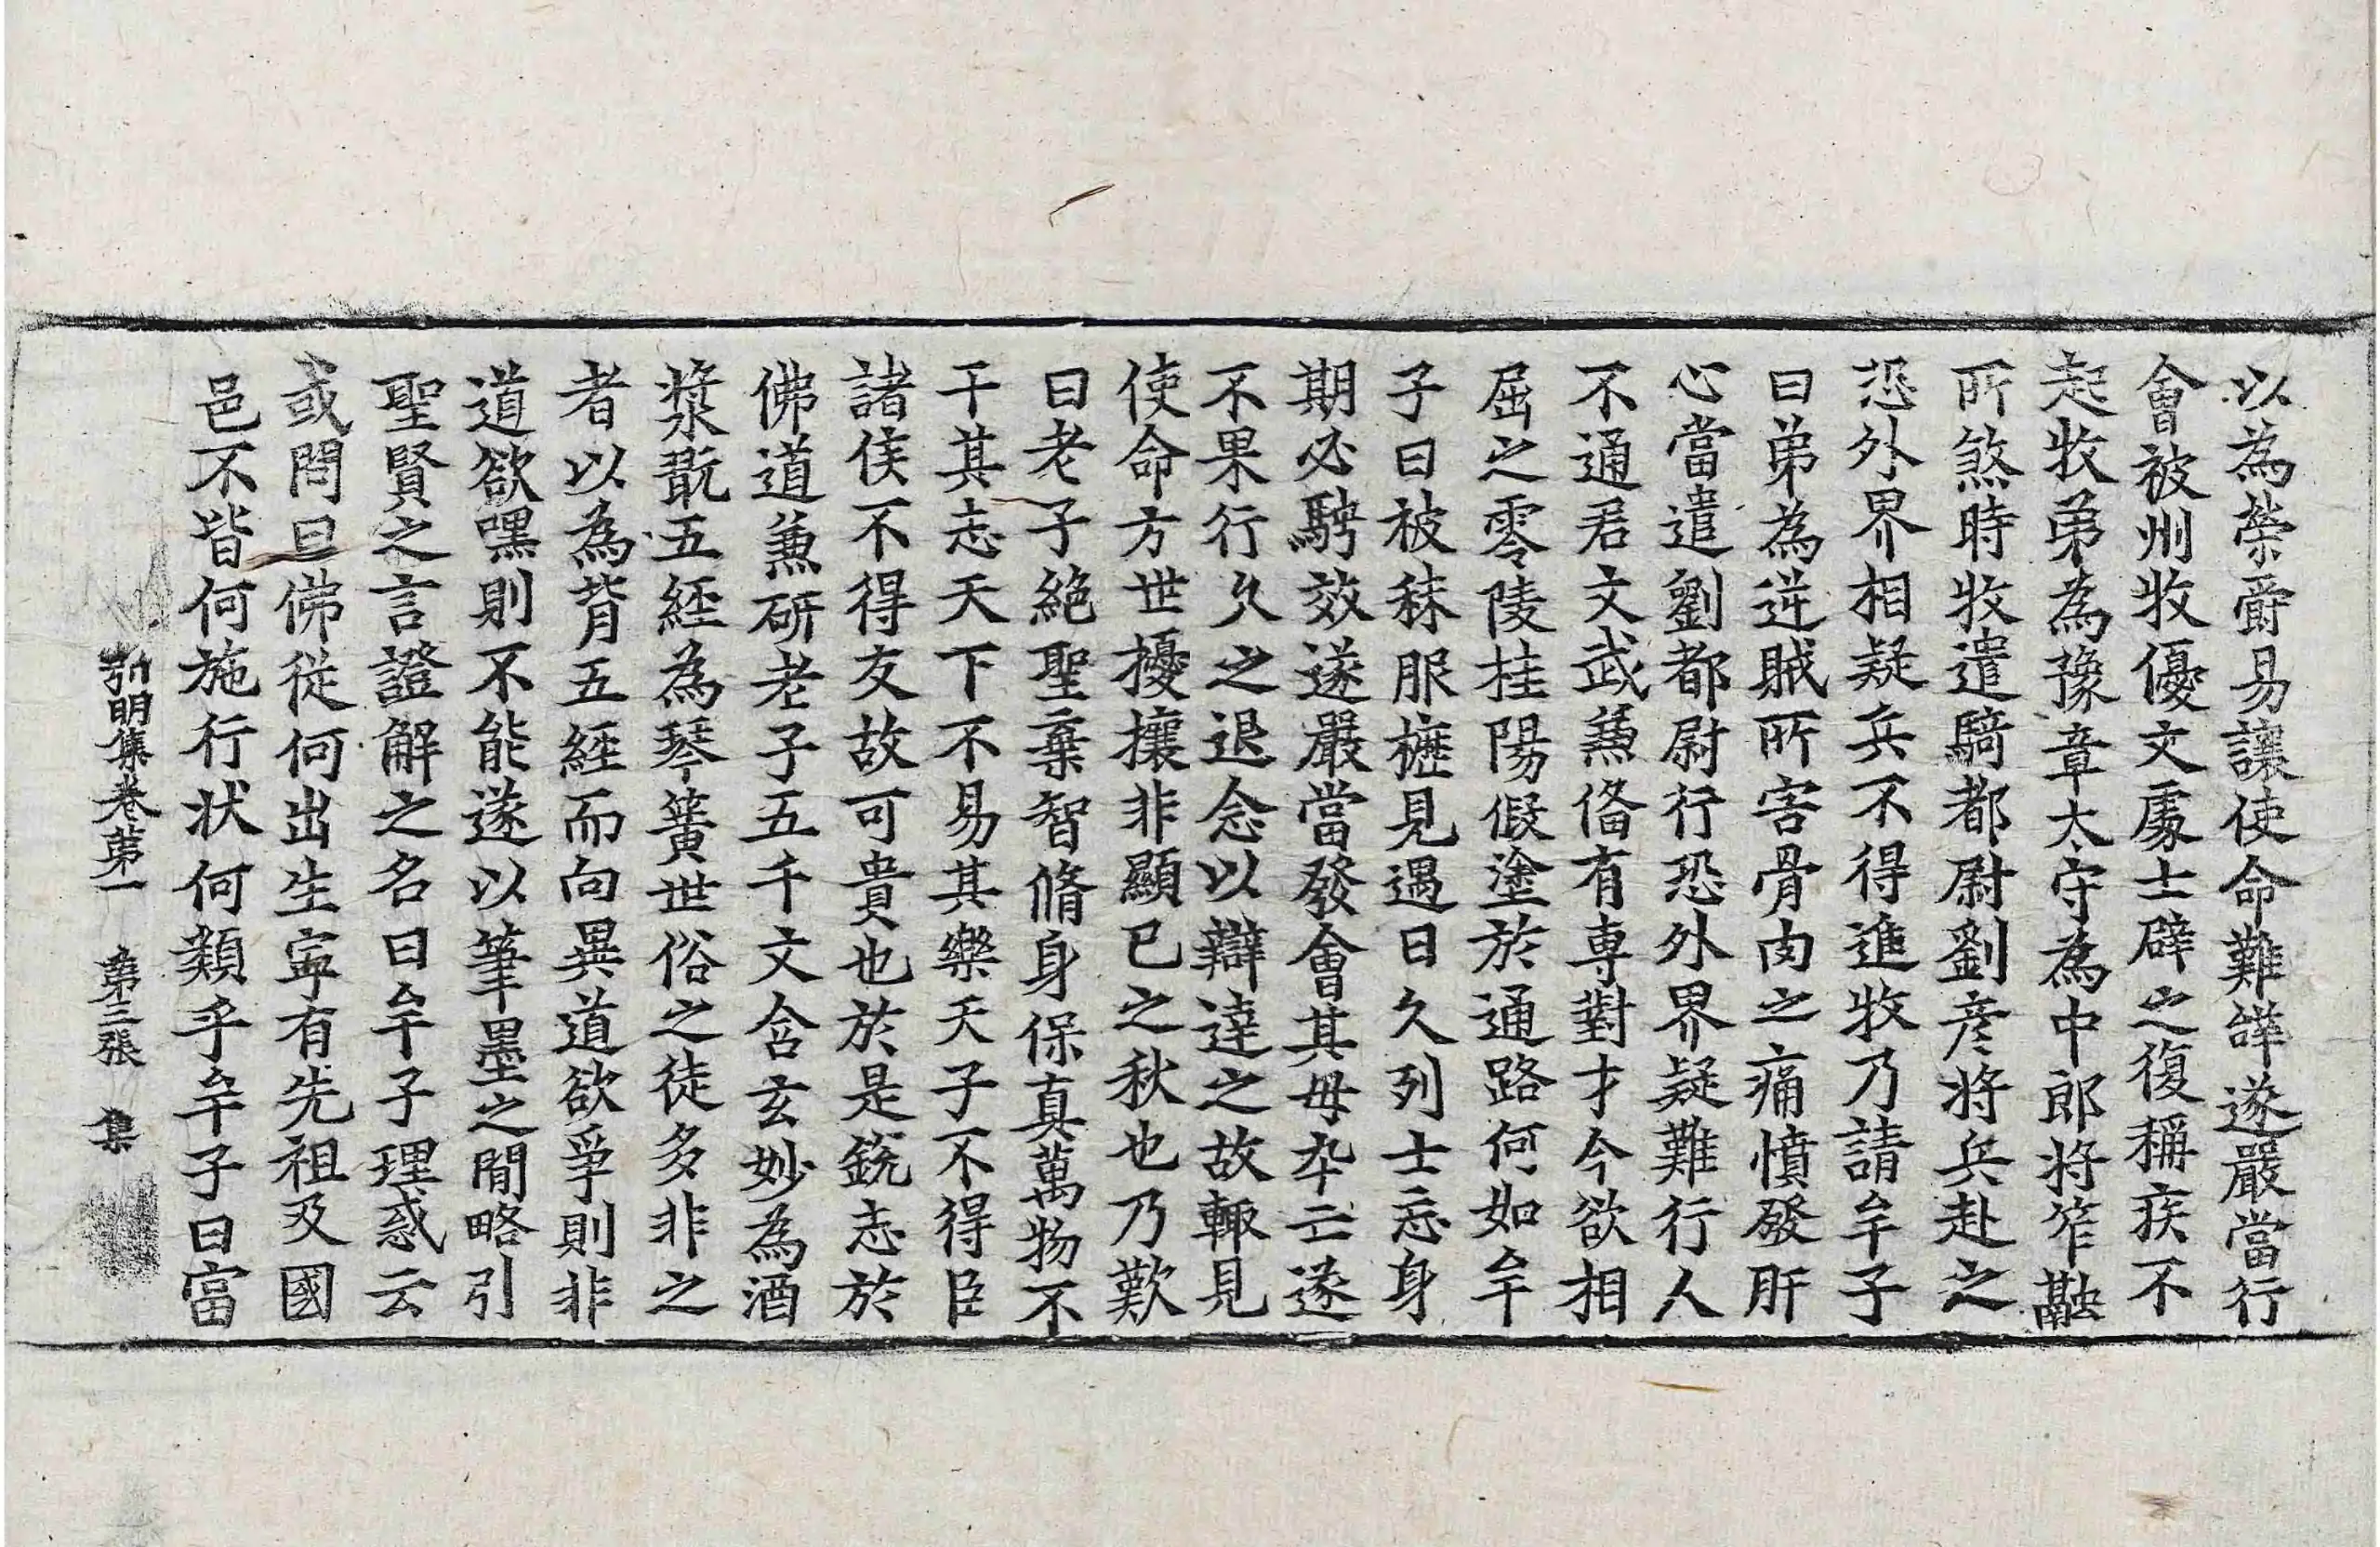 以為榮爵易讓使命難辭遂嚴當行
會被州牧優文處士辟之復稱疾不
起牧弟為豫章太守為中郎將笮融
所煞時牧遣騎都尉劉彦將兵赴之
恐外界相疑兵不得進牧乃請牟子
曰弟為逆賊所害骨肉之痛憤發肝
心當遣劉都尉行恐外界疑難行人
不通君文武兼俻有專對才今欲相
屈之零陵桂陽假塗於通路何如牟
子曰被秣服櫪見遇日久列士忘身
期必騁效遂嚴當發會其母卒亡遂
不果行久之退念以辯達之故輙見
使命方世擾攘非顯已之秋也乃歎
曰老子絶聖棄智脩身保真萬物不
干其志天下不易其樂天子不得臣
諸侯不得友故可貴也於是銳志於
佛道兼研老子五千文含玄妙為酒
漿翫五經為琴簧世俗之徒多非之
者以為背五經而向異道欲爭則非
道欲嘿則不能遂以筆墨之閒略引
聖賢之言證解之名曰牟子理惑云
或問曰佛從何出生寧有先祖及國
邑不皆何施行狀何類乎牟子曰富
弘明集卷第一 第三張 集